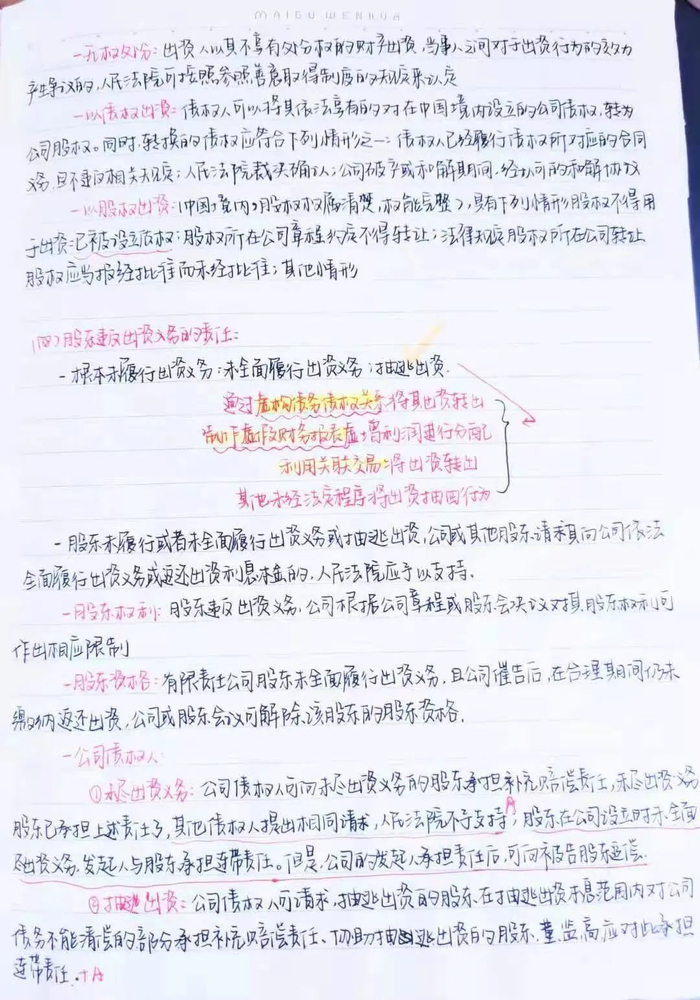 MAIGU WENHUA
-无权处分：出资人以其不享有处分权的财产出资，当事人之间对于出资行为的效力
产生争议的，人民法院可按照参照善意取得制度的规定来认定
-以债权出资：债权人可以将其依法享有的对在中国境内设立的公司债权，转为
公司股权。同时，转换的债权应符合下列情形之一：债权人已经履行债权所对应的合同
义务，且不违反相关规定；人民法院裁决确认；公司破产或和解期间，经认可的和解协议
-以股权出资：（中国境内，股权权属清楚，权能完整），具有下列情形股权不得用
于出资：已被设立质权；股权所在公司章程约定不得转让；法律规定股权所在公司转让
股权应当报经批准而未经批准；其他情形
（四）股东违反出资义务的责任：
-根本未履行出资义务；未全面履行出资义务；抽逃出资.
通过虚构债务债权关系将其出资转出
制作虚假财务报表虚增利润进行分配
利用关联交易将出资转出
其他未经法定程序将出资抽回行为
-股东未履行或者未全面履行出资义务或抽逃出资，公司或其他股东请求其向公司依法
全面履行出资义务或返还出资利息本金的，人民法院应予以支持.
-股东权利：股东违反出资义务，公司根据公司章程或股东会决议对其股东权利可
作出相应限制
-股东资格：有限责任公司股东未全面履行出资义务，且公司催告后，在合理期间仍未
缴纳返还出资，公司或股东会议可解除该股东的股东资格.
-公司债权人：
①未尽出资义务：公司债权人可向未尽出资义务的股东承担补充赔偿责任，未尽出资义务
股东已承担上述责任了，其他债权人提出相同请求，人民法院不予支持，股东在公司设立时未全面
尽出资义务，发起人与股东承担连带责任。但是，公司的发起人承担责任后，可向被告股东追偿.
②抽逃出资：公司债权人可请求抽逃出资的股东在抽逃出资本息范围内对公司
债务不能清偿的部分承担补充赔偿责任、协助抽逃出资的股东，董、监、高应对此承担
连带责任.+A